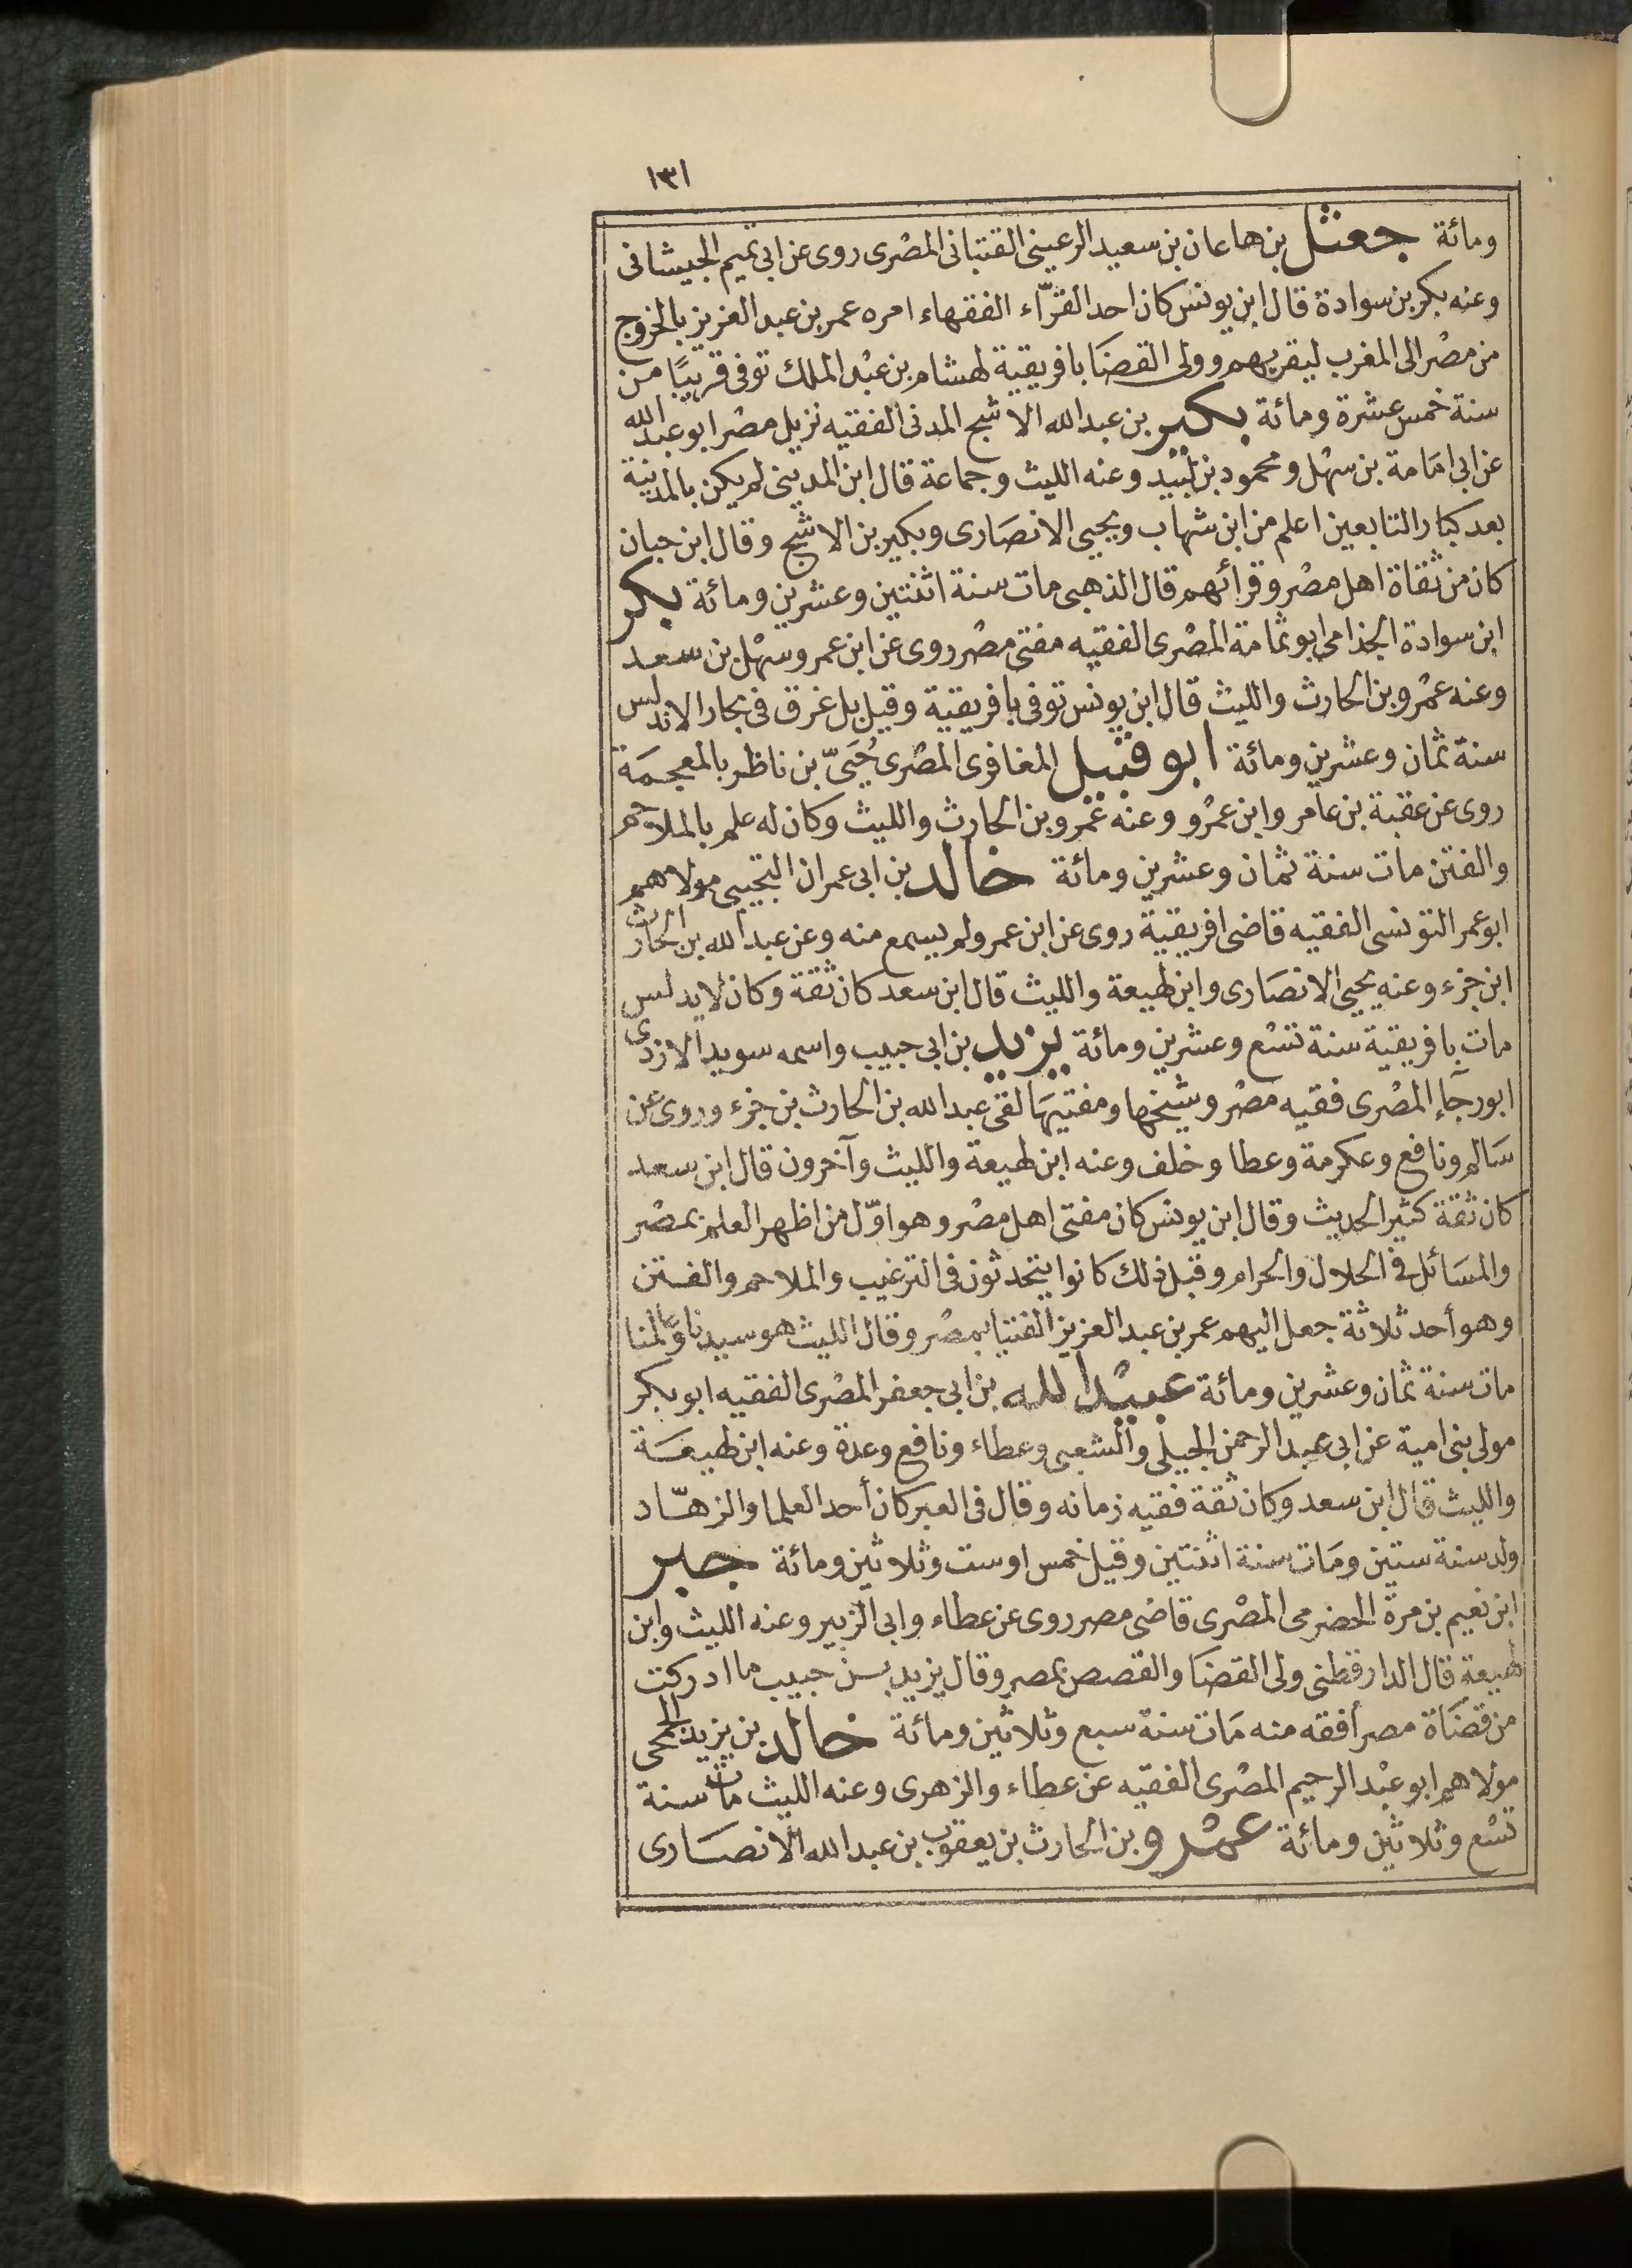 ١٣١
ومائة جعثل بن هاعان بن سعيد الرعيني القتباني المصرى روى عن ابي تميم الجيشانى
وعنه بكر بن سوادة قال ابن يونس كان احد القرّاء الفقهاء امره عمر بن عبد العزيز بالخروج
من مصر الى المغرب ليقريهم وولى القضا بافريقية لهشام بن عبد الملك توفى قريبًا من
سنة خمس عشرة ومائة بكير بن عبد الله الاشج المدنى الفقيه نزيل مصر ابو عبد الله
عن ابى امامة بن سهل ومحمود بن لبيد وعنه الليث وجماعة قال ابن المدينى لم يكن بالمدينة
بعد كبار التابعين اعلم من ابن شهاب ويحيى الانصارى وبكير بن الاشج وقال ابن حبان
كان من ثقاة اهل مصر وقرائهم قال الذهبى مات سنة اثنتين وعشرين ومائة بكر
ابن سوادة الجذامى ابو ثمامة المصرى الفقيه مفتى مصر روى عن ابن عمر وسهل بن سعد
وعنه عمرو بن الحارث والليث قال ابن يونس توفى بافريقية وقيل بل غرق فى بحار الاندلس
سنة ثمان وعشرين ومائة ابو قبيل المغافرى المصرى حُيَىّ بن ناظر بالمعجمة
روى عن عقبة بن عامر وابن عمرو وعنه عمرو بن الحارث والليث وكان له علم بالملاحم
والفتن مات سنة ثمان وعشرين ومائة خالد بن ابى عمران التجيبى مولاهم
ابو عمر التونسى الفقيه قاضى افريقية روى عن ابن عمر ولم يسمع منه وعن عبد الله بن الحارث
ابن جزء وعنه يحيى الانصارى وابن لهيعة والليث قال ابن سعد كان ثقة وكان لا يدلس
مات بافريقية سنة تسع وعشرين ومائة يزيد بن ابى حبيب واسمه سويد الازدى
ابو رجآء المصرى فقيه مصر وشيخها ومفتيها لقى عبد الله بن الحارث بن جزء وروى عن
سالم ونافع وعكرمة وعطا وخلف وعنه ابن لهيعة والليث وآخرون قال ابن سعد
كان ثقة كثير الحديث وقال ابن يونس كان مفتى اهل مصر وهو اوّل من اظهر العلم بمصر
والمسائل فى الحلال والحرام وقبل ذلك كانوا يتحدثون فى الترغيب والملاحم والفتن
وهو أحد ثلاثة جعل اليهم عمر بن عبد العزيز الفتيا بمصر وقال الليث هو سيدنا وعالمنا
مات سنة ثمان وعشرين ومائة عبيد الله بن ابى جعفر المصرى الفقيه ابو بكر
مولى بنى امية عن ابى عبد الرحمن الجيلى والشعبى وعطاء ونافع وعدة وعنه ابن لهيعة
والليث قال ابن سعد وكان ثقة فقيه زمانه وقال فى العبر كان أحد العلما والزهّاد
ولد سنة ستين ومات سنة اثنتين وقيل خمس او ست وثلاثين ومائة جبر
ابن نعيم بن مرة الحضرمى المصرى قاضى مصر روى عن عطاء وابى الزبير وعنه الليث وابن
لهيعة قال الدارقطنى ولى القضا والقصص بمصر وقال يزيد بن حبيب ما ادركت
من قضاة مصر أفقه منه مات سنة سبع وثلاثين ومائة خالد بن يزيد الجمحى
مولاهم ابو عبد الرحيم المصرى الفقيه عن عطاء والزهرى وعنه الليث مات سنة
تسع وثلاثين ومائة عمرو بن الحارث بن يعقوب بن عبد الله الانصارى